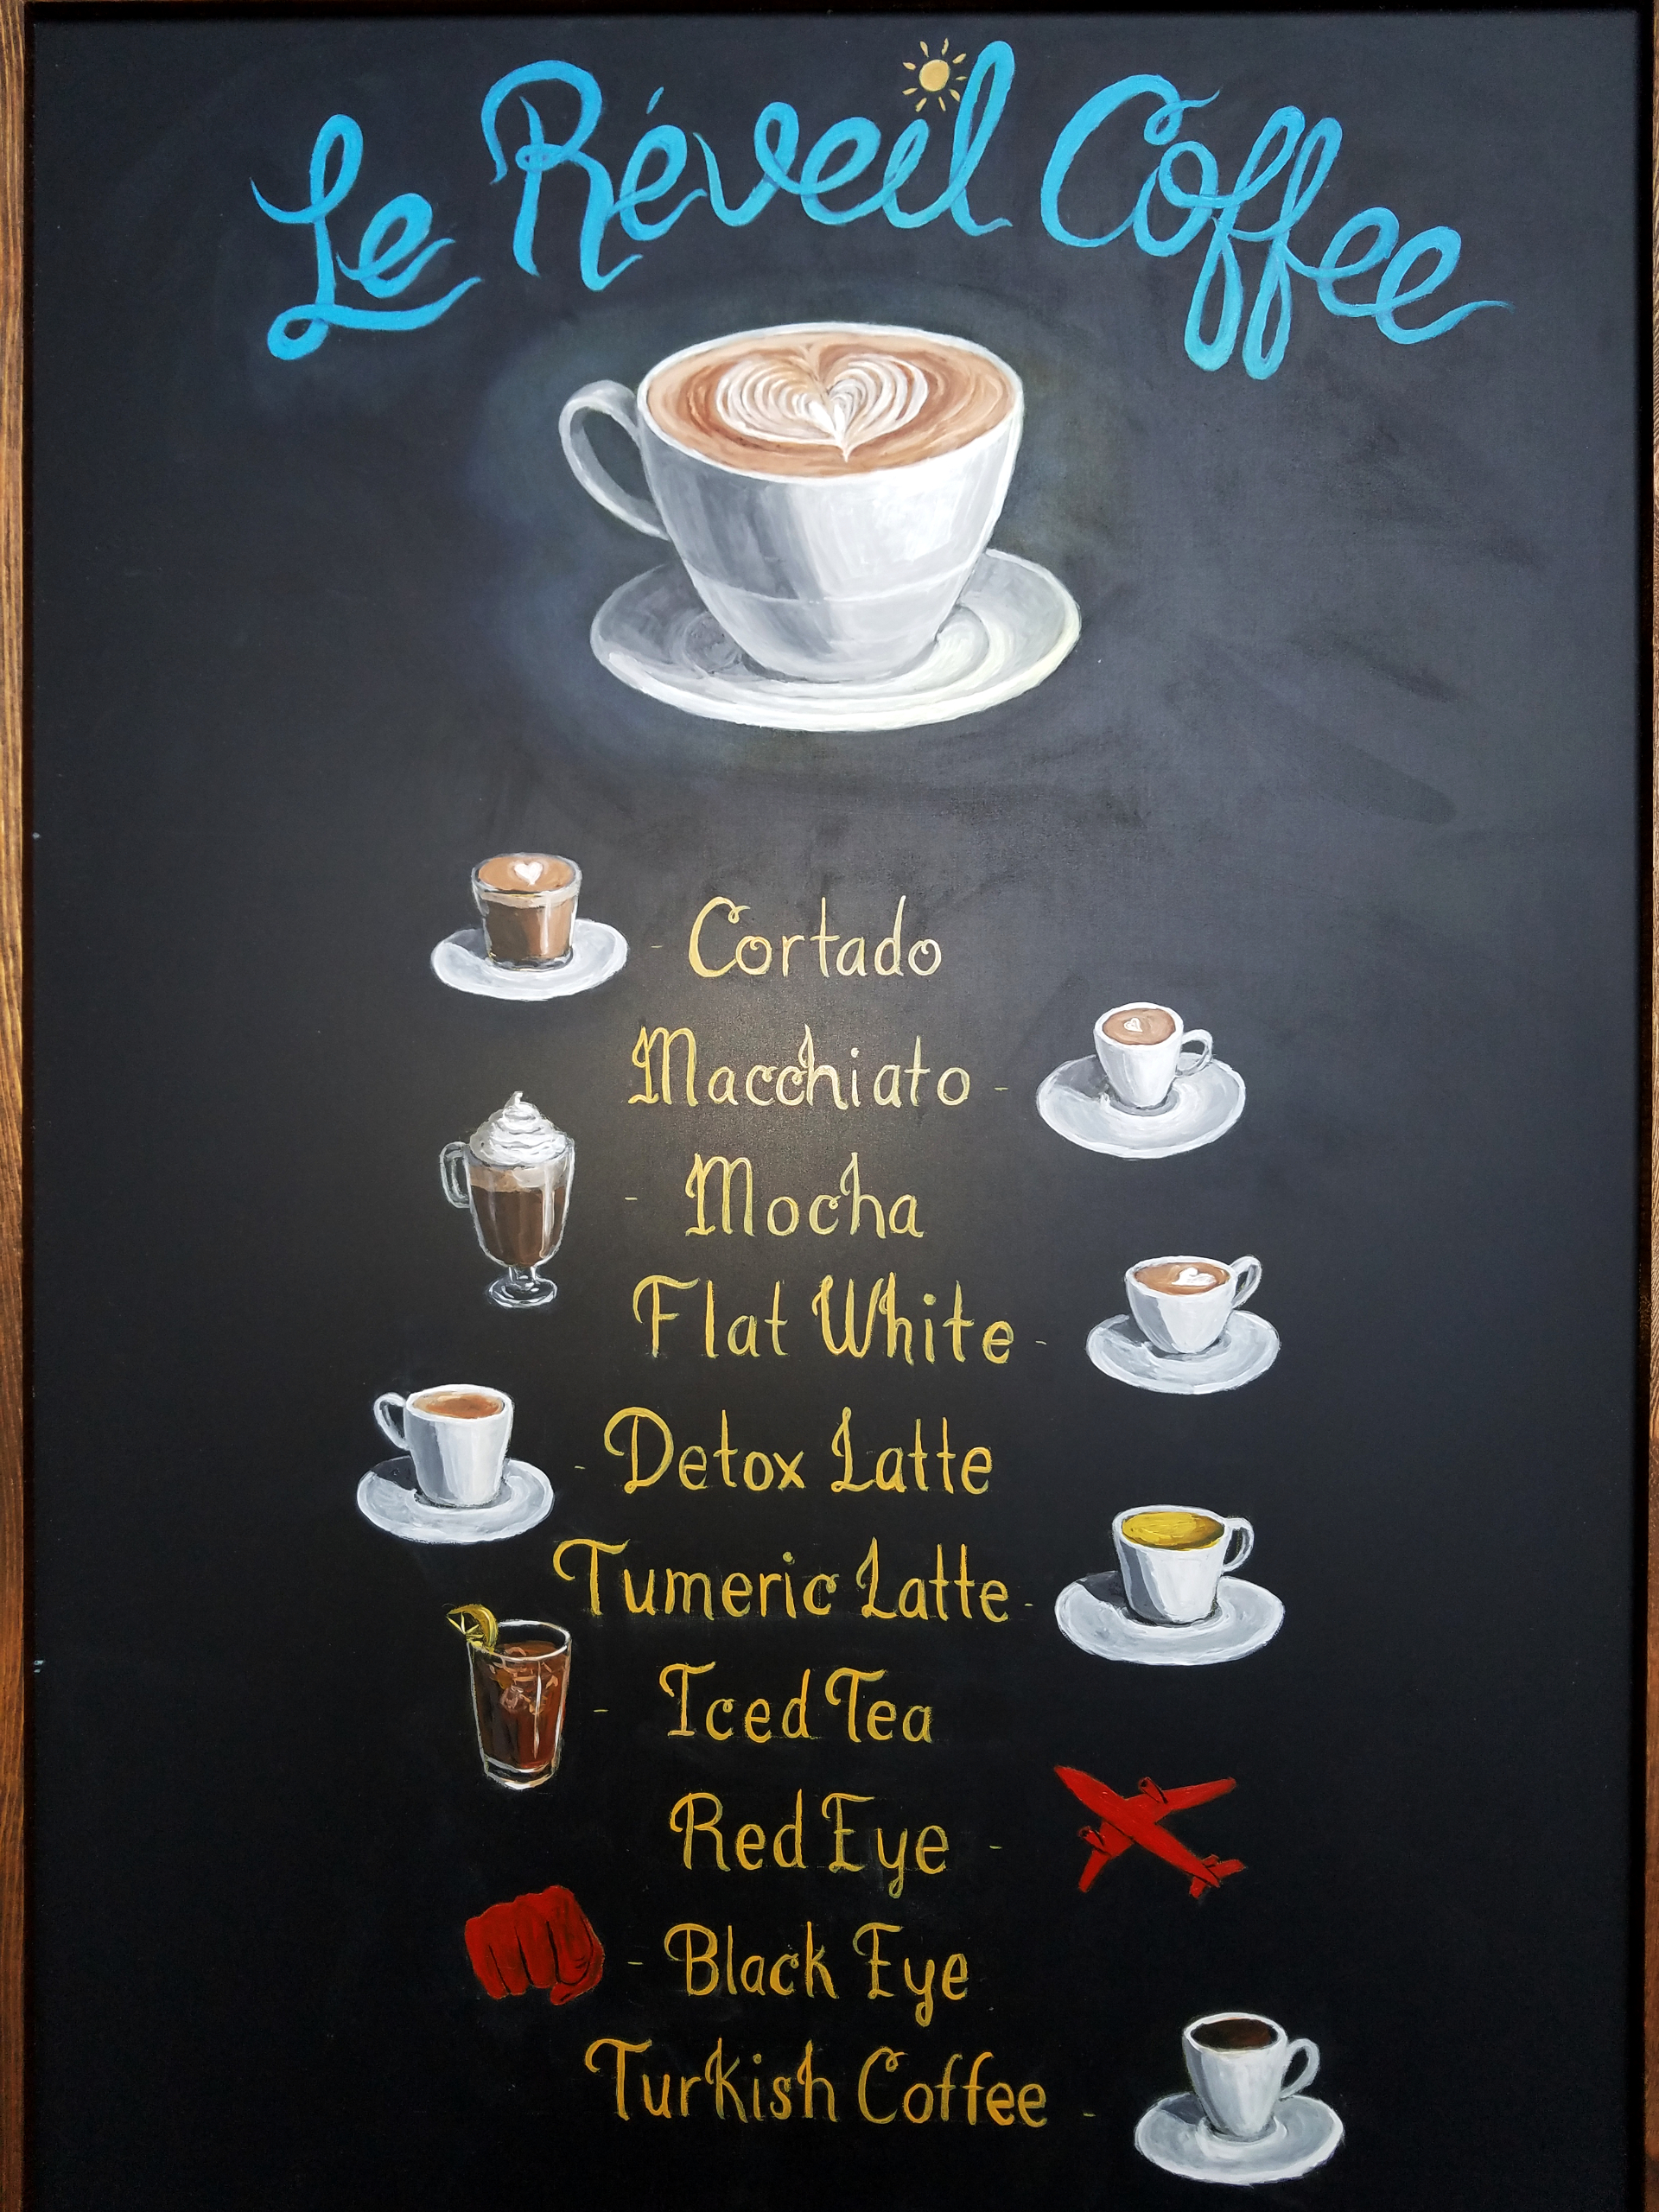 Le Réveil Coffee
- Cortado
Macchiato -
- Mocha
Flat White -
- Detox Latte
Tumeric Latte -
- Iced Tea
Red Eye -
- Black Eye
Turkish Coffee -